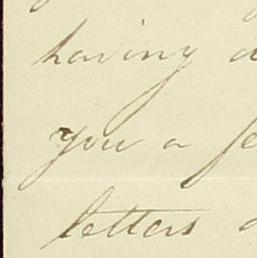 having
you a
letters